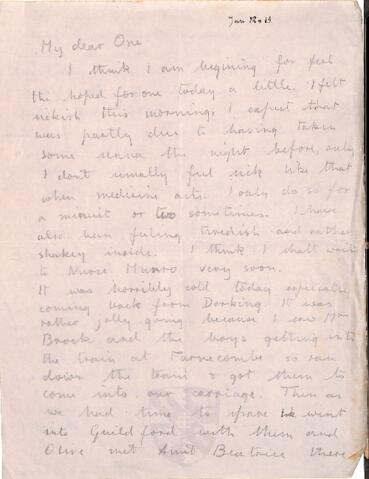 Jan 12 13
My dear One
I think I am begining for feel
the hoped for one today a little. I felt
sickish this morning; I expect that
was partly due to having taken
some senna the night before, only
I don't usually feel sick like that
when medicine acts. I only do so for
a minuit or two sometimes. I have
also been feeling tiredish and rather
shakey inside. I think I shall write
to Nurse Munro very soon.
It was horribly cold today especially
coming back from Dorking. It was
rather jolly going because I saw Mr
Brock and the boys getting into
the train at Farnecombe so ran
down the train & got them to
come into our carriage. Then as
we had time to spare we went
into Guildford with them and
Olive met Aunt Beatrice there